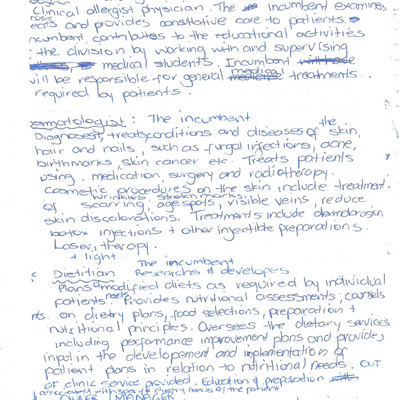 Clinical allergist physician. The incumbent examines
and provides consultative care to patients.
ncumbent contributes to the educational activities
the division by working with and supervising
medical students. Incumbent
will be responsible for general medical treatments
required by patients.
ermatologist: The incumbent
Diagnoses, treats conditions and diseases of the skin,
hair and nails, such as fungal infections, acne,
birthmarks, skin cancer etc. Treats patients
using medication, surgery and radiotherapy.
Cosmetic procedures on the skin include treatment
wrinkles, stretch marks
of scarring, age spots, visible veins, reduce
skin discolorations. Treatments include
botox injections + other injectible preparations.
Laser therapy.
+ light
The incumbent
Dietitian Researches & developes
Plans modified diets as required by individual
patients needs. Provides nutritional assessments, counsels
nts on dietry plans, food selections, preparation +
nutritional principles. Oversees the dietary services
including performance improvement plans and provides
input in the developement and implementation of
patient plans in relation to nutritional needs. Out
of clinic service provided. Education & preparation
associated with specific dietry needs of the patient
MANAGER